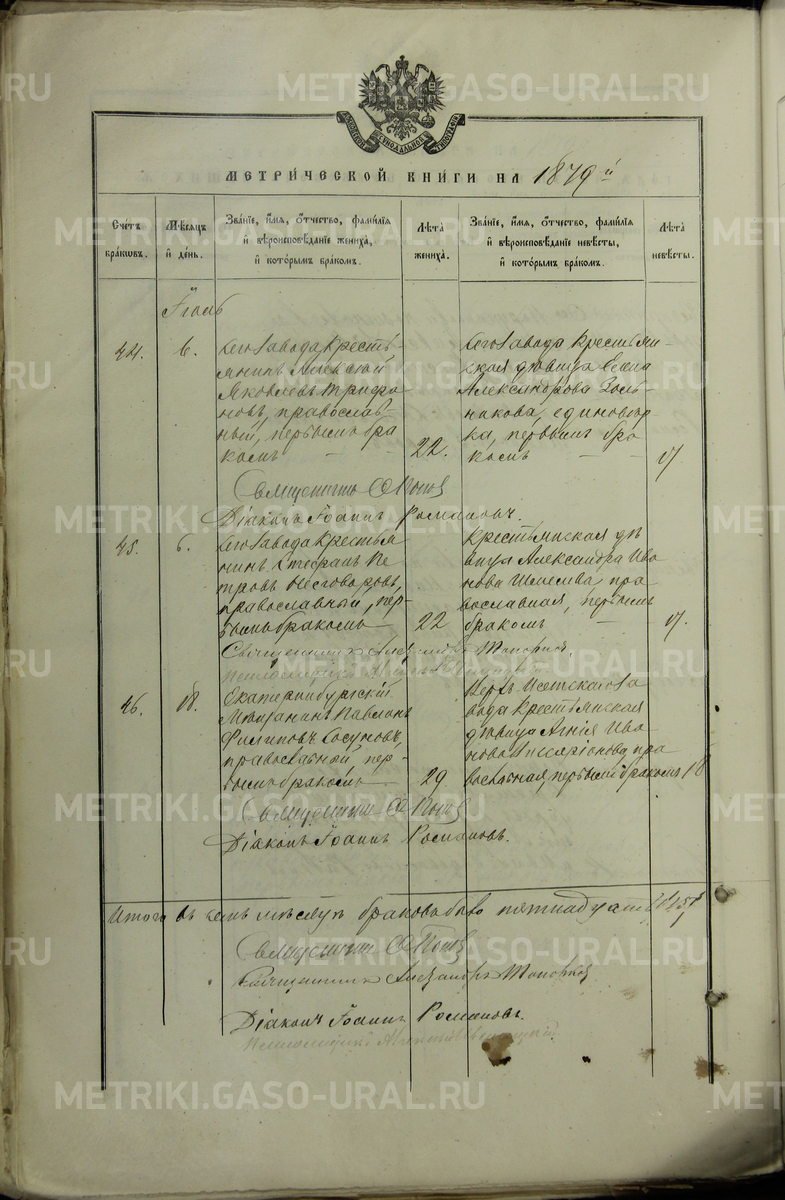 МОСКОВСКОЙ СѴНОДАЛЬНОЙ ТИПОГРАФІИ
МЕТРИЧЕСКОЙ КНИГИ НА 1879й
Счетъ браковъ.
Мѣсяцъ и день.
Званіе, имя, отчество, фамилія и вѣроисповѣданіе жениха, и которымъ бракомъ.
Лѣта жениха.
Званіе, имя, отчество, фамилія и вѣроисповѣданіе невѣсты, и которымъ бракомъ.
Лѣта невѣсты.
Іюль
44. 6.
Сего завода кресть-
янинъ Алексій
Яковлевъ Трифо-
новъ, православ-
ный, первымъ бра
комъ
22.
Сего завода крестьян-
ская дѣвица
Александрова
единовѣр-
ка, первымъ бра
комъ
17
Священникъ Поповъ
Діаконъ Іоаннъ Романовъ.
45. 6.
Сего завода крестья
нинъ Стефанъ Пе
тровъ Несговоровъ,
православный, пер-
вымъ бракомъ
22
крестьянская дѣ
вица Александра Ива
нова пра
вославная, первымъ
бракомъ
17.
Священникъ Александръ Топорковъ
46. 18.
Екатеринбургскій
мѣщанинъ Павлинъ
Филиповъ Сосуновъ,
православный, пер-
вымъ бракомъ
29
Верхъ Исетскаго за
вода крестьянская
дѣвица Агнія Ива
нова пра
вославная, первымъ бракомъ 18
Священникъ Поповъ
Діаконъ Іоаннъ Романовъ.
Итого въ семъ мѣсяцѣ браковъ было пятнадцать
Священникъ Поповъ
Священникъ Александръ Топорковъ
Діаконъ Іоаннъ Романовъ.
METRIKI.GASO-URAL.RU